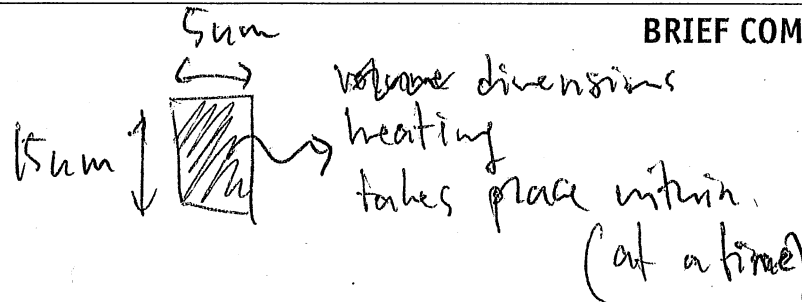 BRIEF COM
5um
volume dimensions
15um
heating
takes place within.
(at a time)